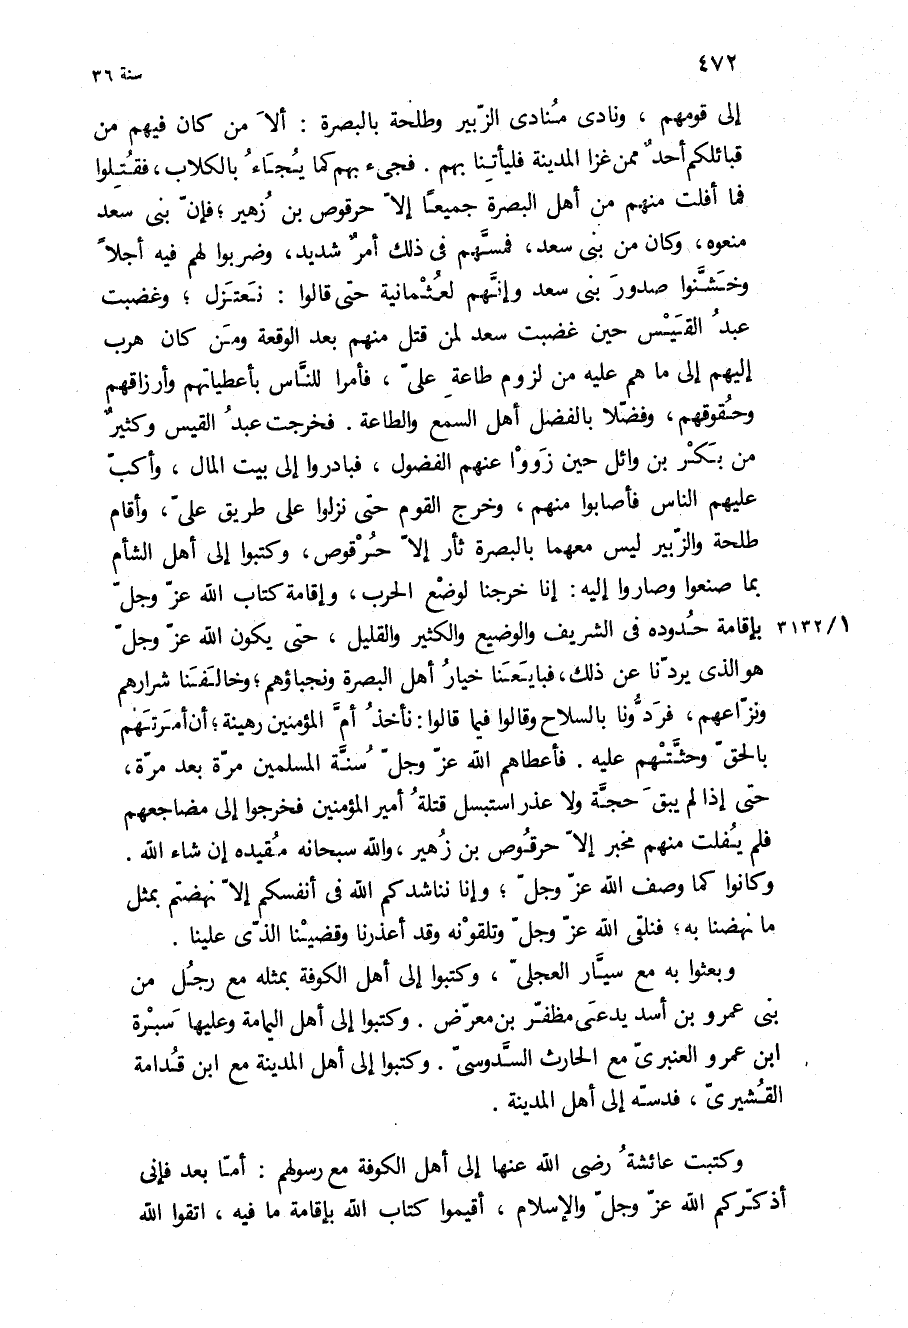 ٤٧٢
سنة ٣٦
إلى قومهم ، ونادى مُنادى الزّبير وطلحة بالبصرة : ألاَ من كان فيهم من
قبائلكم أحدٌ ممن غزا المدينة فليأتِنا بهم . فجىء بهم كما يُجاءُ بالكلاب، فقُتِلوا
فما أفلت منهم من أهل البصرة جميعًا إلاّ حرقوص بن زُهير ؛ فإنّ بنى سعد
منعوه، وكان من بنى سعد، فمسَّهم فى ذلك أمرٌ شديد، وضربوا لهم فيه أجلاً
وخَشَّنُوا صدورَ بنى سعد وإنَّهم لعُثْمانية حتى قالوا : نَعتزل ؛ وغضبت
عبدُ القَيْس حين غضبت سعد لمن قتل منهم بعد الوقعة ومَن كان هرب
إليهم إلى ما هم عليه من لزوم طاعةِ علىّ ، فأمرا للنَّاس بأعطياتهم وأرزاقهم
وحُقوقهم، وفضّلا بالفضل أهل السمع والطاعة . فخرجت عبدُ القيس وكثيرٌ
من بَكْر بن وائل حين زَوَوْا عنهم الفضول ، فبادروا إلى بيت المال ، وأكبّ
عليهم الناس فأصابوا منهم ، وخرج القوم حتى نزلوا على طريق علىّ ، وأقام
طلحة والزّبير ليس معهما بالبصرة ثأر إلاّ حُرْقوص، وكتبوا إلى أهل الشأم
بما صنعوا وصاروا إليه: إنا خرجنا لوضْع الحرب، وإقامة كتاب الله عزّ وجلّ
بإقامة حُدوده فى الشريف والوضيع والكثير والقليل ، حتى يكون الله عزّ وجلّ ٣١٣٢/١
هو الذى يردّنا عن ذلك، فبايَعَنا خيارُ أهل البصرة ونجباؤهم؛ وخالفَنا شرارهم
ونزّاعهم، فرَدُّونا بالسلاح وقالوا فيما قالوا: نأخذُ أمَّ المؤمنين رهينة؛ أن أمرَتهْم
بالحقّ وحثَّتْهم عليه . فأعطاهم الله عزّ وجلّ سُنَّة المسلمين مرّة بعد مرّة ،
حتى إذا لم يبقَ حجّة ولا عذر استبسل قتلةُ أمير المؤمنين فخرجوا إلى مضاجعهم
فلم يُفلت منهم مخبر إلاّ حرقُوص بن زُهير ، والله سبحانه مُقيده إن شاء الله .
وكانوا كما وصف الله عزّ وجلّ ؛ وإنا نناشدكم الله فى أنفسكم إلاّ نهضتم بمثل
ما نهضنا به؛ فنلقى الله عزّ وجلّ وتلقوْنه وقد أعذرنا وقضيْنا الذّى علينا .
وبعثوا به مع سيَّار العجلىّ ، وكتبوا إلى أهل الكوفة بمثله مع رجُل من
بنى عمرو بن أسد يدعَى مظفّر بن معرّض . وكتبوا إلى أهل اليمامة وعليها سَبْرة
ابن عمرو العنبرىّ مع الحارث السَّدوسىّ . وكتبوا إلى أهل المدينة مع ابن قُدامة
القُشيرىّ ، فدسّه إلى أهل المدينة .
وكتبت عائشةُ رضى الله عنها إلى أهل الكوفة مع رسولهم : أمّا بعد فإنى
أذكّركم الله عزّ وجلّ والإسلام ، أقيموا كتاب الله بإقامة ما فيه ، اتقوا الله